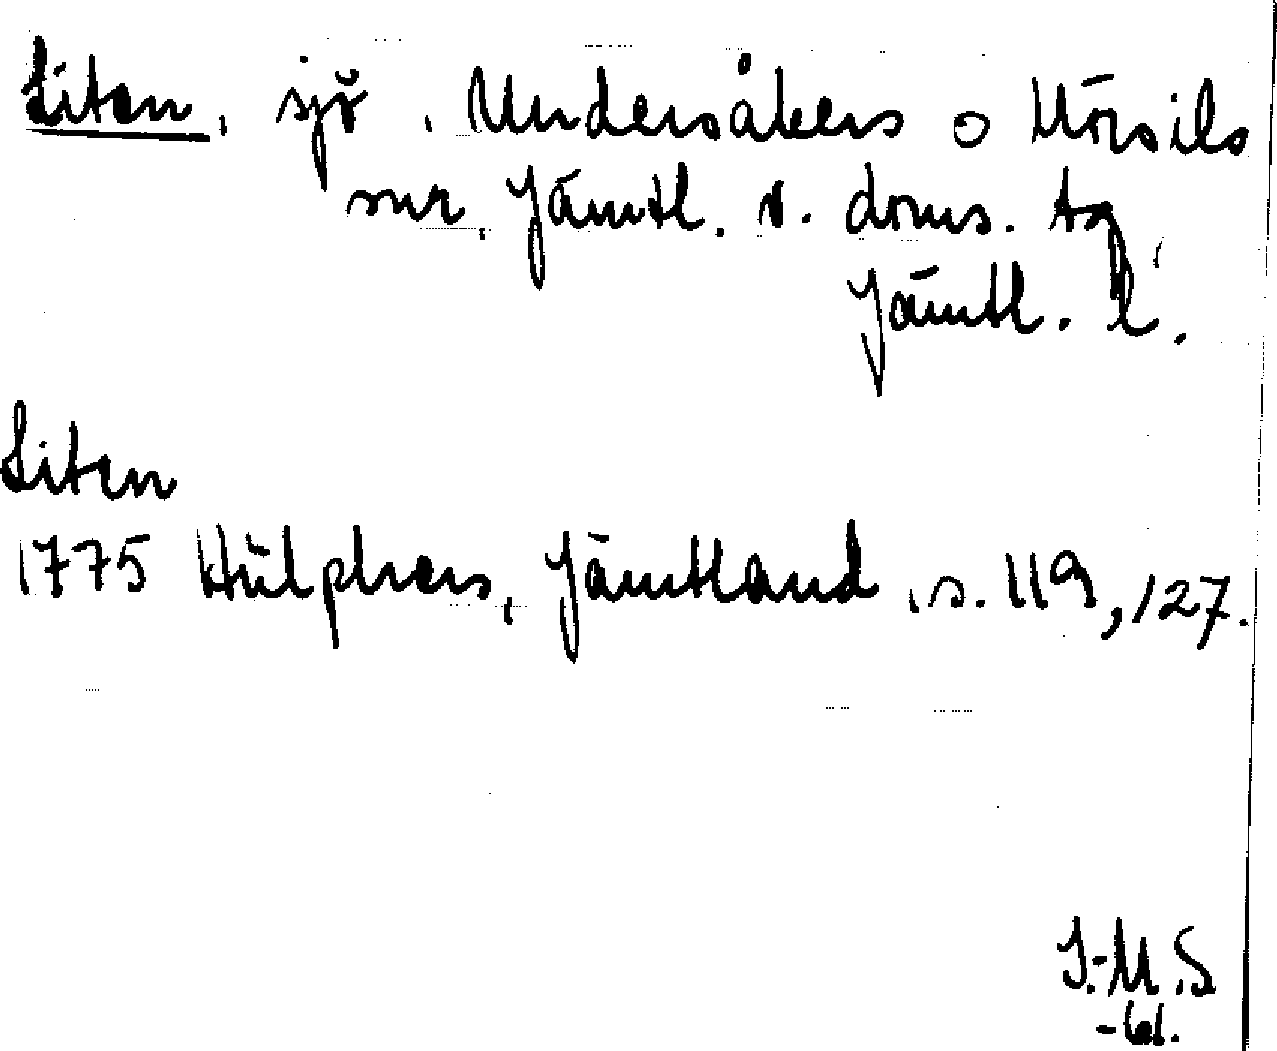 Liten, sjö, Undersåkers o Mörsils
snr, Jämtl. v. doms. tg
Jämtl. l.
Liten
1775 Hülphers, Jämtland, s. 119, 127.
I.-M.S
-61.